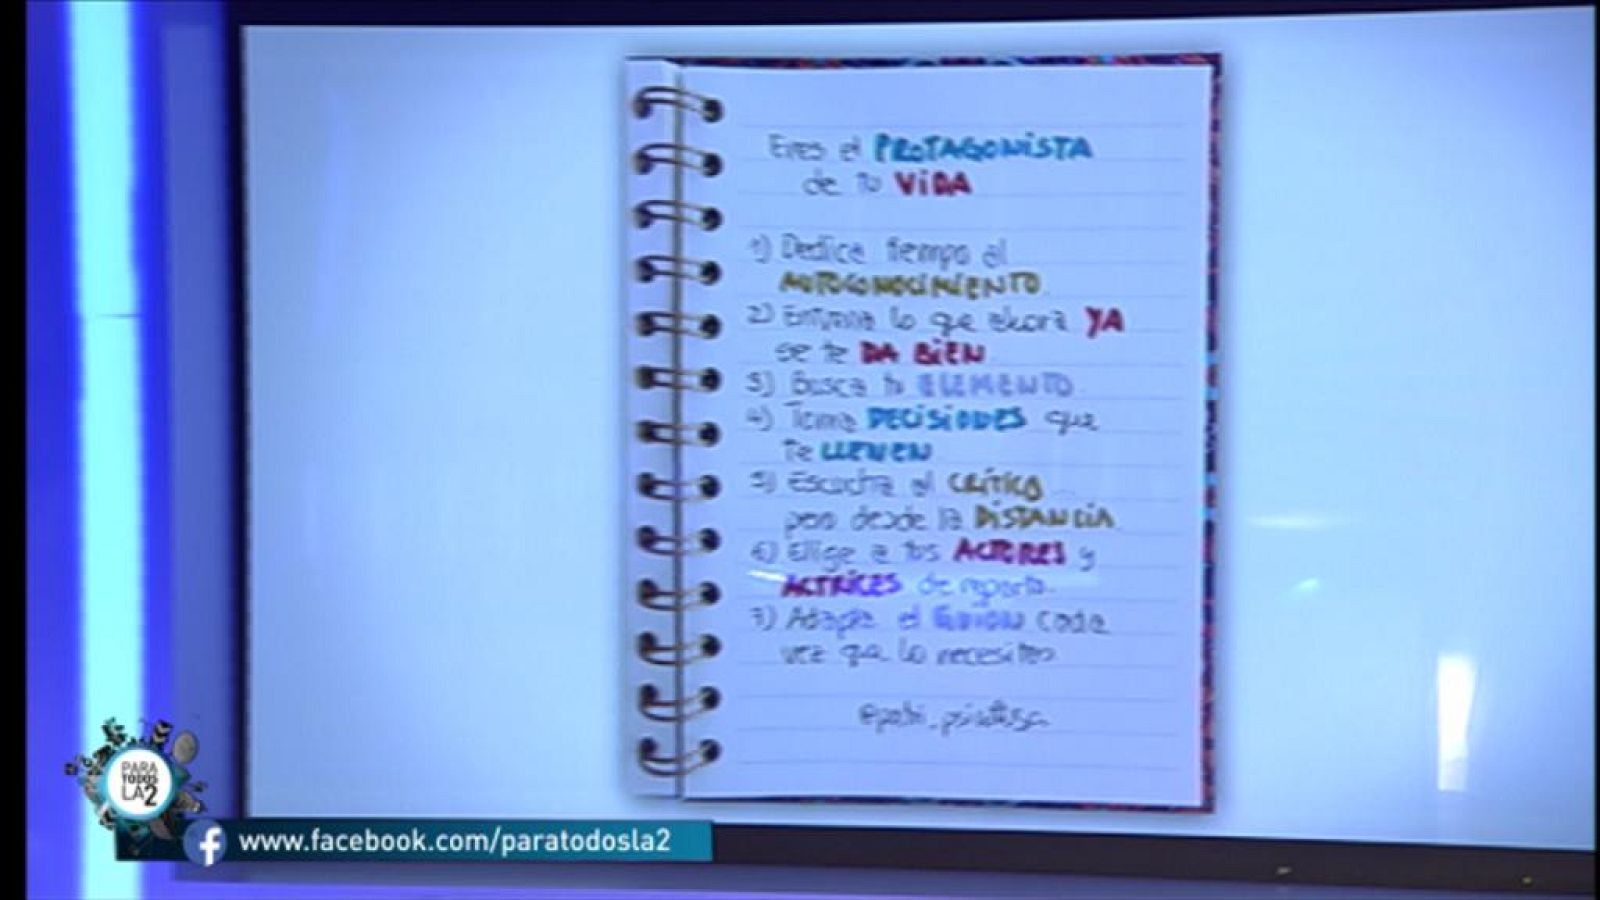 Eres el PROTAGONISTA
de tu VIDA
1) Dedica tiempo al
AUTOCONOCIMIENTO
2) Entrena lo que ahora YA
se te DA BIEN
3) Busca tu ELEMENTO
4) Toma DECISIONES que
te LLENEN
5) Escucha al CRÍTICO
pero desde la DISTANCIA
6) Elige a tus ACTORES y
ACTRICES de reparto.
7) Adapta el GUIÓN cada
vez que lo necesites
@patri_psicologa
PARA
TODOS
LA2
www.facebook.com/paratodosla2